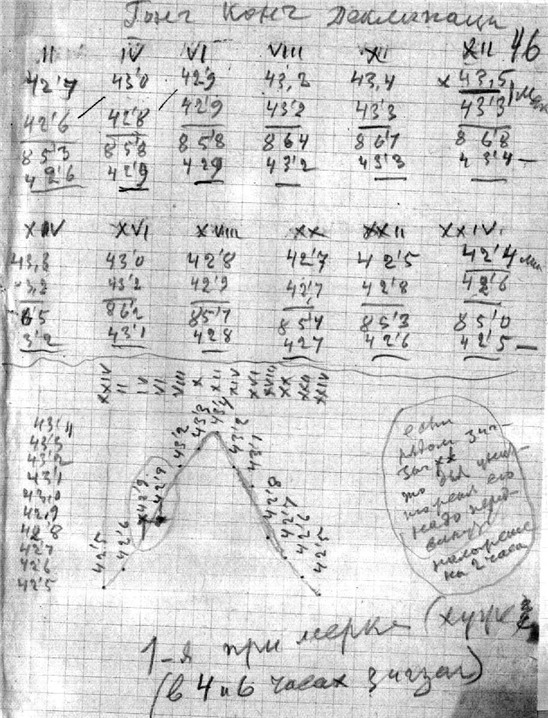 Гонг Конг Деклинаци
46
II IV VI VIII XI XII
42'7 43'0 42'9 43,2 43,4 x 43,5
42'6 42'8 42'9 43'2 43'3 43'3
853 85'8 85'8 864 86'7 86'8
42'6 42'9 429 43'2 43'3 43'4 —
XIV XVI XVIII XX XXII XXIV
43,3 43'0 42'8 42'7 42'5 42'4
3,2 43'2 42'9 42'7 42'8 42'6
65 862 85'7 85'4 85'3 85'0
3'2 43'1 428 427 42'6 42'5 —
XXIV II IV VI VIII X XII XIV XVI XVIII XX XXII XXIV
43'4
43'3
43'2
43'1
43,0
42,9
42'8
42'7
42'6
42'5
42'5 42'6 42'9 42'9 43'2 43'3 43'4 43'2 43'1 42'8 42'7 42'6 42'5
если
то был
его
надо
на 2 часа
1-я при мерке (хуже
(в 4 и 6 часах зигзаг)